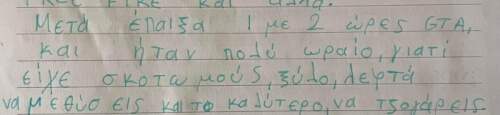 Μετά έπαιξα 1 με 2 ώρες GTA,
και ήταν πολύ ωραίο, γιατί
είχε σκοτωμούς, ξύλο, λεφτά
να μεθύσεις και το καλύτερο, να τζογάρεις